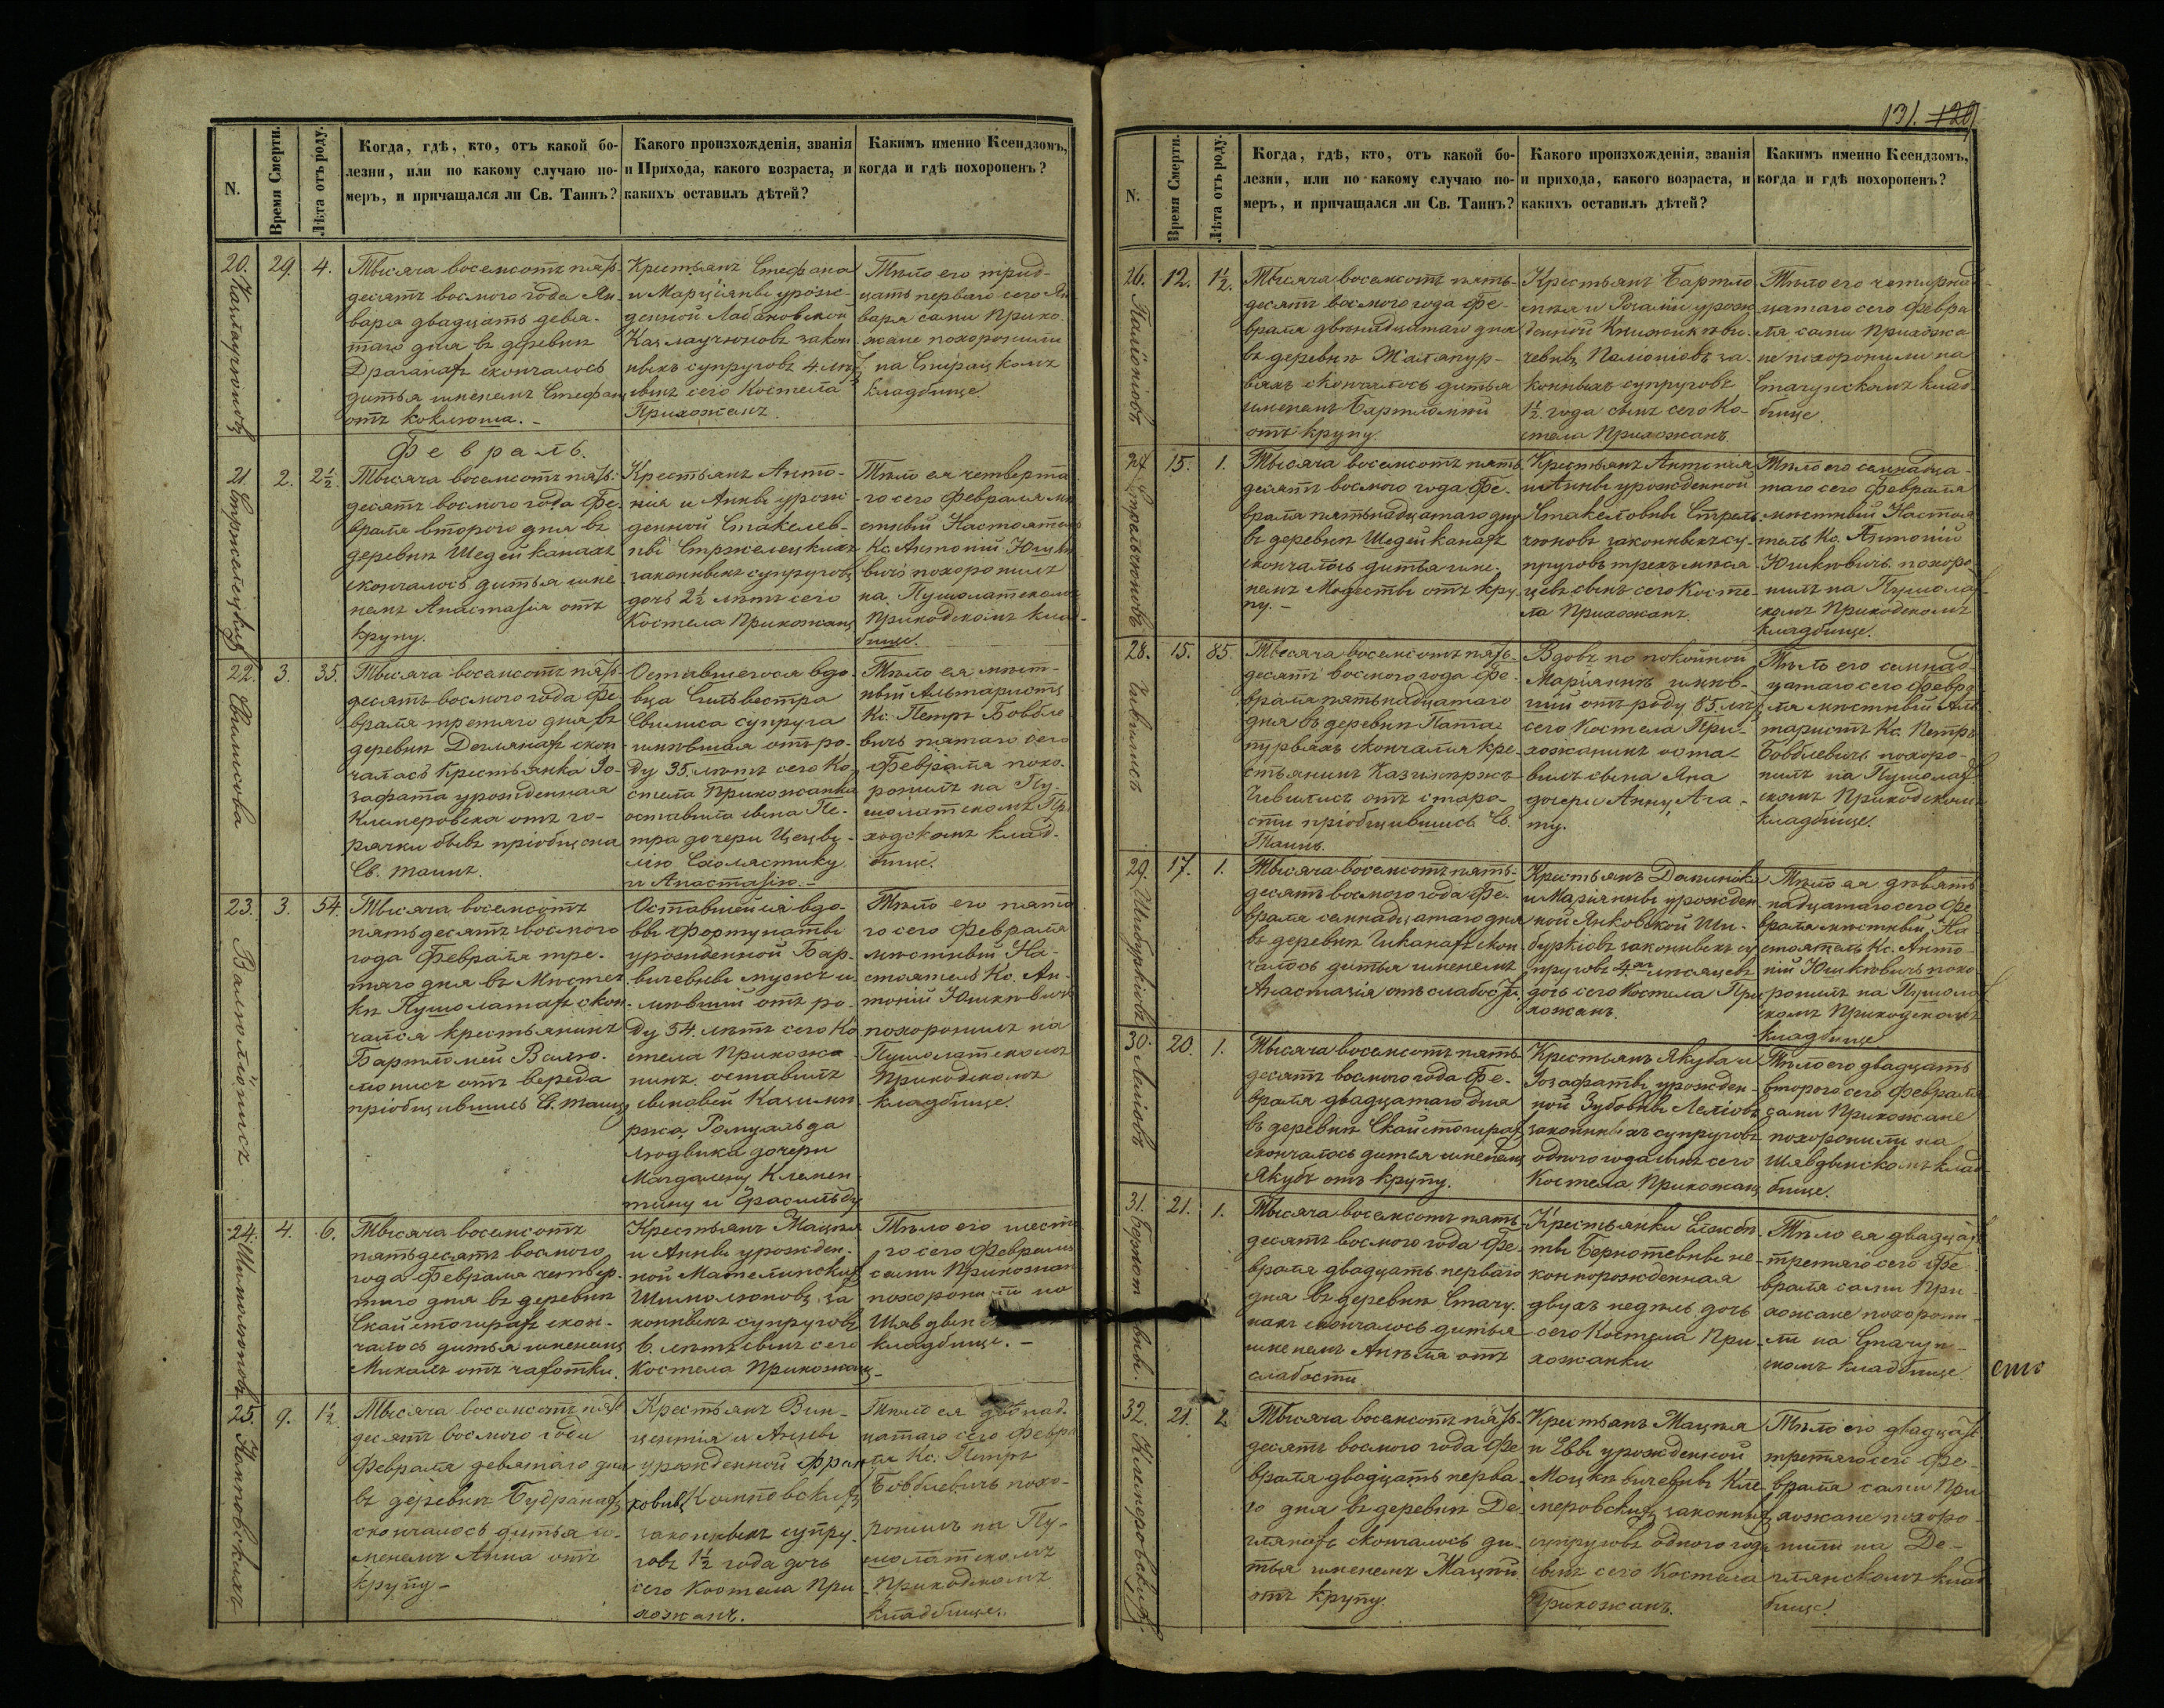 N.
Время Смерти.
Лѣта отъ роду.
Когда, гдѣ, кто, отъ какой бо-
лезни, или по какому случаю по-
меръ, и причащался ли Св. Таинъ?
Какого произхожденія, званія
и Прихода, какого возраста, и
какихъ оставилъ дѣтей?
Какимъ именно Ксендзомъ,
когда и гдѣ похороненъ?
20.
29.
4.
Тысяча восемсотъ пять-
десятъ восмого года Ян-
варя двадцать девя-
таго дня въ деревни
скончалось
дитья именемъ Стефан
отъ коклюша.
Крестьянъ Стефана
и Марціянны урож-
денной Лабановской
закон
ныхъ супруговъ 4 лѣтъ
сынъ сего Костела
Прихожанъ.
Тѣло его трид-
цать перваго сего Ян
варя сами Прихо-
жане похоронили
на
кладбище.
Февраль.
21.
2.
2½
Тысяча восемсотъ пять-
десятъ восмого года Фе-
враля второго дня въ
деревни Шедейканахъ
скончалось дитья име
немъ Анастазія отъ
крупу.
Крестьянъ Анто-
нія и Анны урож
денной Стакелев-
ны Стржелецкихъ
законныхъ супруговъ
дочь 2½ лѣтъ сего
Костела Прихожанъ
Тѣло ея четверта
го сего Февраля мѣ
стный Настоятель
Кс. Антоній Юшкѣ
вичъ похоронилъ
на Пушолатскомъ
Приходскомъ клад-
бище.
22. Свилисова
3.
35.
Тысяча восемсотъ пять-
десятъ восмого года Фе-
враля третяго дня въ
деревни Деглянахъ скон
чалась крестьянка Іо-
зафата урожденная
Клемеровска отъ го-
рячки бывъ пріобщена
Св. таинъ.
Оставшегося вдо-
вца Сильвестра
Свилиса супруга
имѣвшая отъ ро-
ду 35. лѣтъ сего Ко
стела Прихожанка
оставила сына Пе-
тра дочери Цецы-
лію Схоластику
и Анастазію.
Тѣло ея мѣст-
ный Альтаристъ
Кс. Петръ Бовбле
вичъ пятаго сего
Февраля похо-
ронилъ на Пу-
шолатскомъ При
ходскомъ клад-
бище.
23.
3.
54.
Тысяча восемсотъ
пятьдесятъ восмого
года Февраля тре-
тяго дня въ Мѣстеч
ки Пушолатахъ скон-
чался крестьянинъ
Бартломей Валю-
отъ вереда
пріобщившись Св. таинъ
Оставшейся вдо-
вы Фортунаты
урожденной Бар-
вичевны мужъ и-
мѣвшій отъ ро-
ду 54. лѣтъ сего Ко
стела Прихожа
нинъ. оставилъ
сыновей Казими-
ржа, Ромуальда
Людвика дочери
Магдалену Клемен
тину и
Тѣло его пята
го сего Февраля
мѣстный На-
стоятель Кс. Ан-
тоній Юшкѣвичъ
похоронилъ на
Пушолатскомъ
Приходскомъ
кладбище.
24.
4.
6.
Тысяча восемсотъ
пятьдесятъ восмого
года Февраля четвер-
таго дня въ деревни
Скайстогирахъ скон-
чалось дитья именемъ
Михалъ отъ чахотки.
Крестьянъ Мацѣя
и Анны урожден-
ной
за
конныхъ супруговъ
6. лѣтъ сынъ сего
Костела Прихожанъ
Тѣло его шеста
го сего Февраля
сами Прихожан
похоронили на
кладбище.
25.
9.
1½
Тысяча восемсотъ пять
десятъ восмого года
Февраля девятаго дня
въ деревни
скончалось дитья и-
менемъ Анна отъ
крупу
Крестьянъ Вин-
центія и
урожденной
законныхъ супру-
говъ 1½ года дочь
сего Костела При
хожанъ.
Тѣло ея двѣнад-
цатаго сего Февра
ля Кс. Петръ
Бовблевичъ похо-
ронилъ на Пу-
шолатскомъ
Приходскомъ
кладбище.
131. 129
N.
Время Смерти.
Лѣта отъ роду.
Когда, гдѣ, кто, отъ какой бо-
лезни, или по какому случаю по-
меръ, и причащался ли Св. Таинъ?
Какого произхожденія, званія
и прихода, какого возраста, и
какихъ оставилъ дѣтей?
Какимъ именно Ксендзомъ,
когда и гдѣ похороненъ?
26.
12.
1½.
Тысяча восемсотъ пять-
десятъ восмого года Фе-
враля двѣнадцатаго дня
въ деревни
скончалось дитья
именемъ Бартломій
отъ крупу.
Крестьянъ Бартло
мѣя и Розаліи урож
денной
за-
конныхъ супруговъ
1½ года сынъ сего Ко-
стела Прихожанъ
Тѣло его четырнад
цатаго сего Февра
ля сами Прихожа
не похоронили на
Стачунскомъ клад-
бище.
27.
15.
1.
Тысяча восемсотъ пять
десятъ восмого года Фе-
враля пятьнадцатаго дня
въ деревни Шедейканахъ
скончалось дитья име-
немъ Модестъ отъ кру
пу.
Крестьянъ Антонія
и Анны урожденной
Стакелевны Стрель-
чюновъ законныхъ су-
пруговъ трехъ мѣся
цевъ сынъ сего Косте-
ла Прихожанъ.
Тѣло его семнадца-
таго сего Февраля
мѣстный Настоя
тель Кс. Антоній
Юшкѣвичъ похоро-
нилъ на Пушолат
скомъ Приходскомъ
кладбище.
28.
15.
85.
Тысяча восемсотъ пять-
десятъ восмого года Фе-
враля пятьнадцатаго
дня въ деревни
скончался кре-
стьянинъ Казимиржъ
отъ старо-
сти пріобщившись Св.
Таинъ.
Вдовъ по покойной
Маріяннѣ имѣв-
шій отъ роду 85 лѣтъ
сего Костела При-
хожанинъ оста-
вилъ сына Яна
дочери Анну, Ага-
ту.
Тѣло его семнад-
цатаго сего Февра
ля мѣстный Аль
таристъ Кс. Петръ
Бовблевичъ похоро-
нилъ на Пушолат
скомъ Приходскомъ
кладбище.
29.
17.
1.
Тысяча восемсотъ пять-
десятъ восмого года Фе-
враля семнадцатаго дня
въ деревни Чиканахъ скон
чалось дитья именемъ
Анастазія отъ слабости.
Крестьянъ Доминика
и Маріянны урожден
ной Янковской Ши-
буркісъ законныхъ су
пруговъ 4. мѣсяцевъ
дочь сего Костела При
хожанъ.
Тѣло ея девять
надцатаго сего Фе
враля мѣстный На-
стоятель Кс. Анто-
ній Юшкѣвичъ похо-
ронилъ на Пушолат
скомъ Приходскомъ
кладбище
30.
20.
1.
Тысяча восемсотъ пять
десятъ восмого года Фе-
враля двадцатаго дня
въ деревни Скайстогирахъ
скончалось дитья именемъ
Якубъ отъ крупу.
Крестьянъ Якуба и
Іозафаты урожден-
ной Зубовны Леліовъ
законныхъ супруговъ
одного года сынъ сего
Костела Прихожанъ
Тѣло его двадцать
второго сего Февраля
сами Прихожане
похоронили на
клад-
бище.
31.
21.
1.
Тысяча восемсотъ пять
десятъ восмого года Фе-
враля двадцать перваго
дня въ деревни Стачу-
нахъ скончалось дитья
именемъ Анѣля отъ
слабости
Крестьянки Елжбѣ-
ты Бернотевны не-
коннорожденная
двухъ недѣль дочь
сего Костела При-
хожанки
Тѣло ея двадцать
третяго сего Фе-
враля сами При-
хожане похорони-
ли на Стачун-
скомъ кладбище
сто
32.
21.
2
Тысяча восемсотъ пять-
десятъ восмого года Фе
враля двадцать перва-
го дня въ деревни Де-
глянахъ скончалось ди-
тья именемъ Мацѣй
отъ крупу.
Крестьянъ Мацѣя
и Евы урожденной
Моцкѣвичевны Кле
меровскихъ законныхъ
супруговъ одного года
сынъ сего Костела
Прихожанъ.
Тѣло его двадцать
третяго сего Фе-
враля сами При
хожане похоро-
нили на Де-
глянскомъ клад
бище.